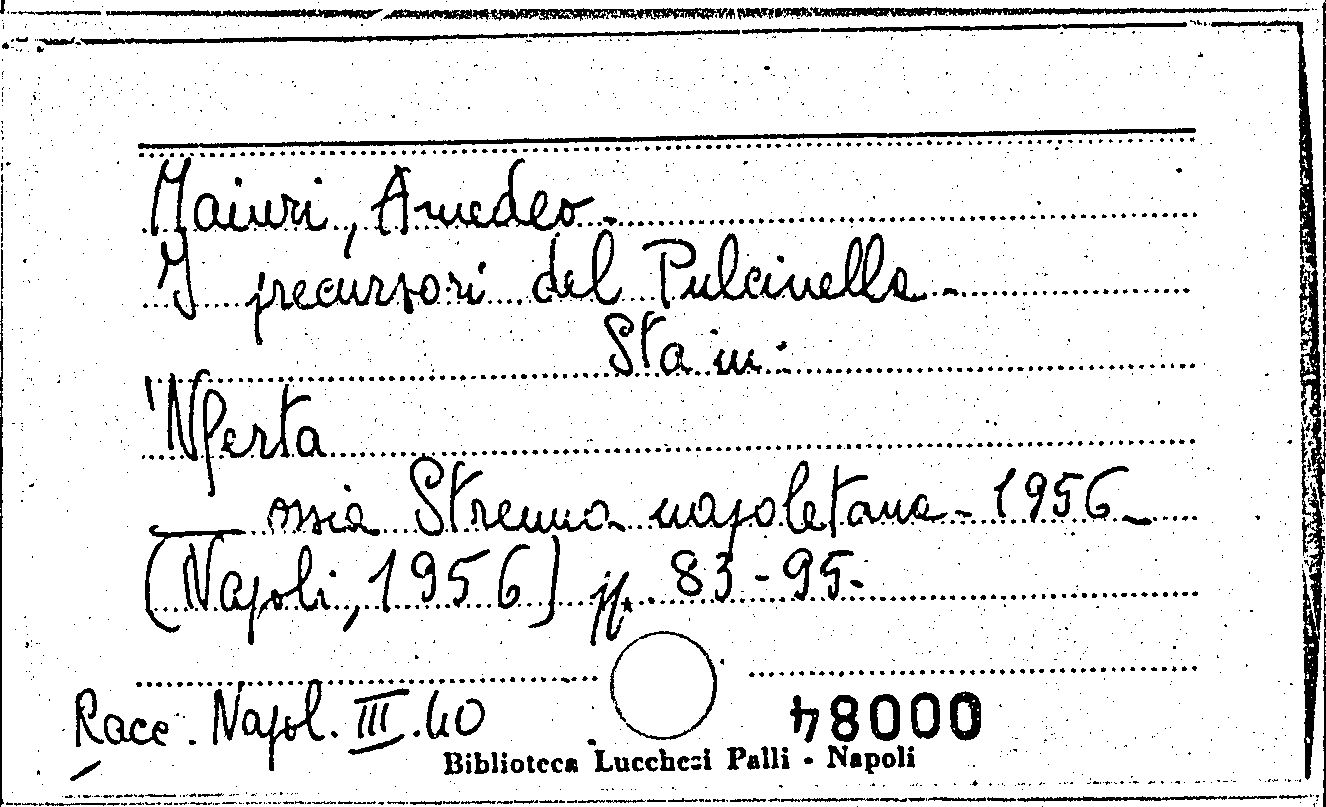 Maiuri, Amedeo -
I precursori del Pulcinella -
Sta in:
'Nferta
___ ossia Strenna napoletana - 1956 -
(Napoli, 1956) pp. 83 - 95.
Racc. Napol. III. 40
00084
Biblioteca Lucchesi Palli - Napoli